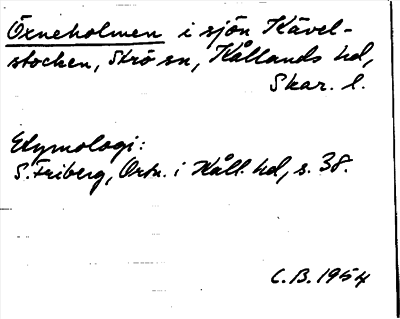 Öxneholmen i sjön Kävel-
stocken, Strö sn, Kållands hd,
Skar. l.
Etymologi:
S. Friberg, Ortn. i Kåll. hd, s. 38.
C.B. 1954